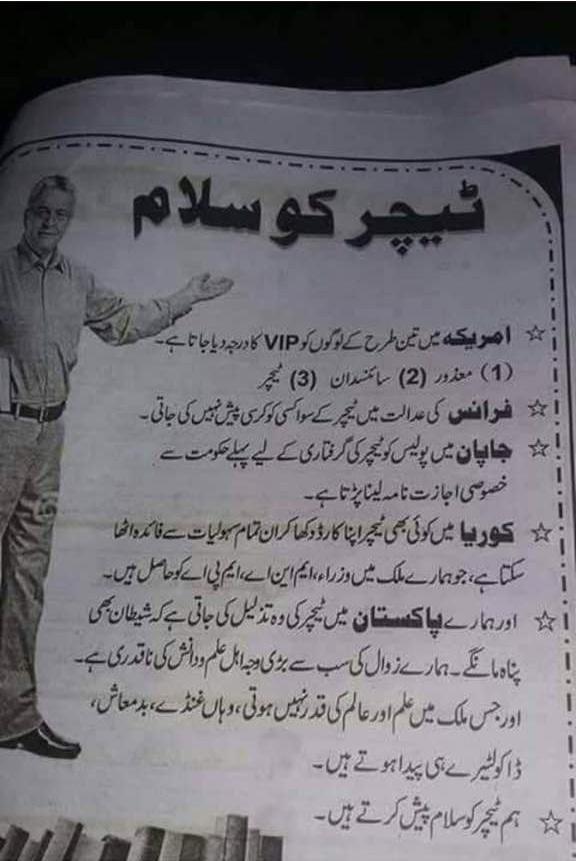 ٹیچر کو سلام
☆ امریکہ میں تین طرح کے لوگوں کو VIP کا درجہ دیا جاتا ہے۔
(1) معذور (2) سائنسدان (3) ٹیچر
☆ فرانس کی عدالت میں ٹیچر کے سوا کسی کو کرسی پیش نہیں کی جاتی۔
☆ جاپان میں پولیس کو ٹیچر کی گرفتاری کے لیے پہلے حکومت سے
خصوصی اجازت نامہ لینا پڑتا ہے۔
☆ کوریا میں کوئی بھی ٹیچر اپنا کارڈ دکھا کر ان تمام سہولیات سے فائدہ اٹھا
سکتا ہے، جو ہمارے ملک میں وزراء، ایم این اے، ایم پی اے کو حاصل ہیں۔
☆ اور ہمارے پاکستان میں ٹیچر کی وہ تذلیل کی جاتی ہے کہ شیطان بھی
پناہ مانگے۔ ہمارے زوال کی سب سے بڑی وجہ اہل علم و دانش کی ناقدری ہے۔
اور جس ملک میں علم اور عالم کی قدر نہیں ہوتی، وہاں غنڈے، بدمعاش،
ڈاکو لٹیرے ہی پیدا ہوتے ہیں۔
☆ ہم ٹیچر کو سلام پیش کرتے ہیں۔